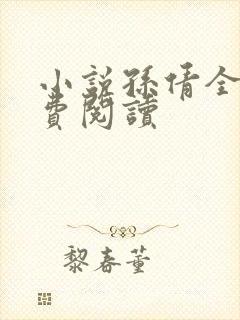 小說孫倩全
費閱讀
黎春董